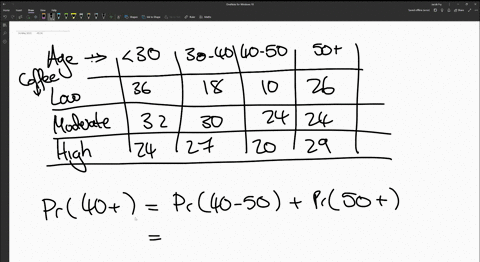 Age → <30 30-40 40-50 50+
Coffee
Low 36 18 10 26
Moderate 32 30 24 24
High 24 27 20 29
Pr(40+) = Pr(40-50) + Pr(50+)
=